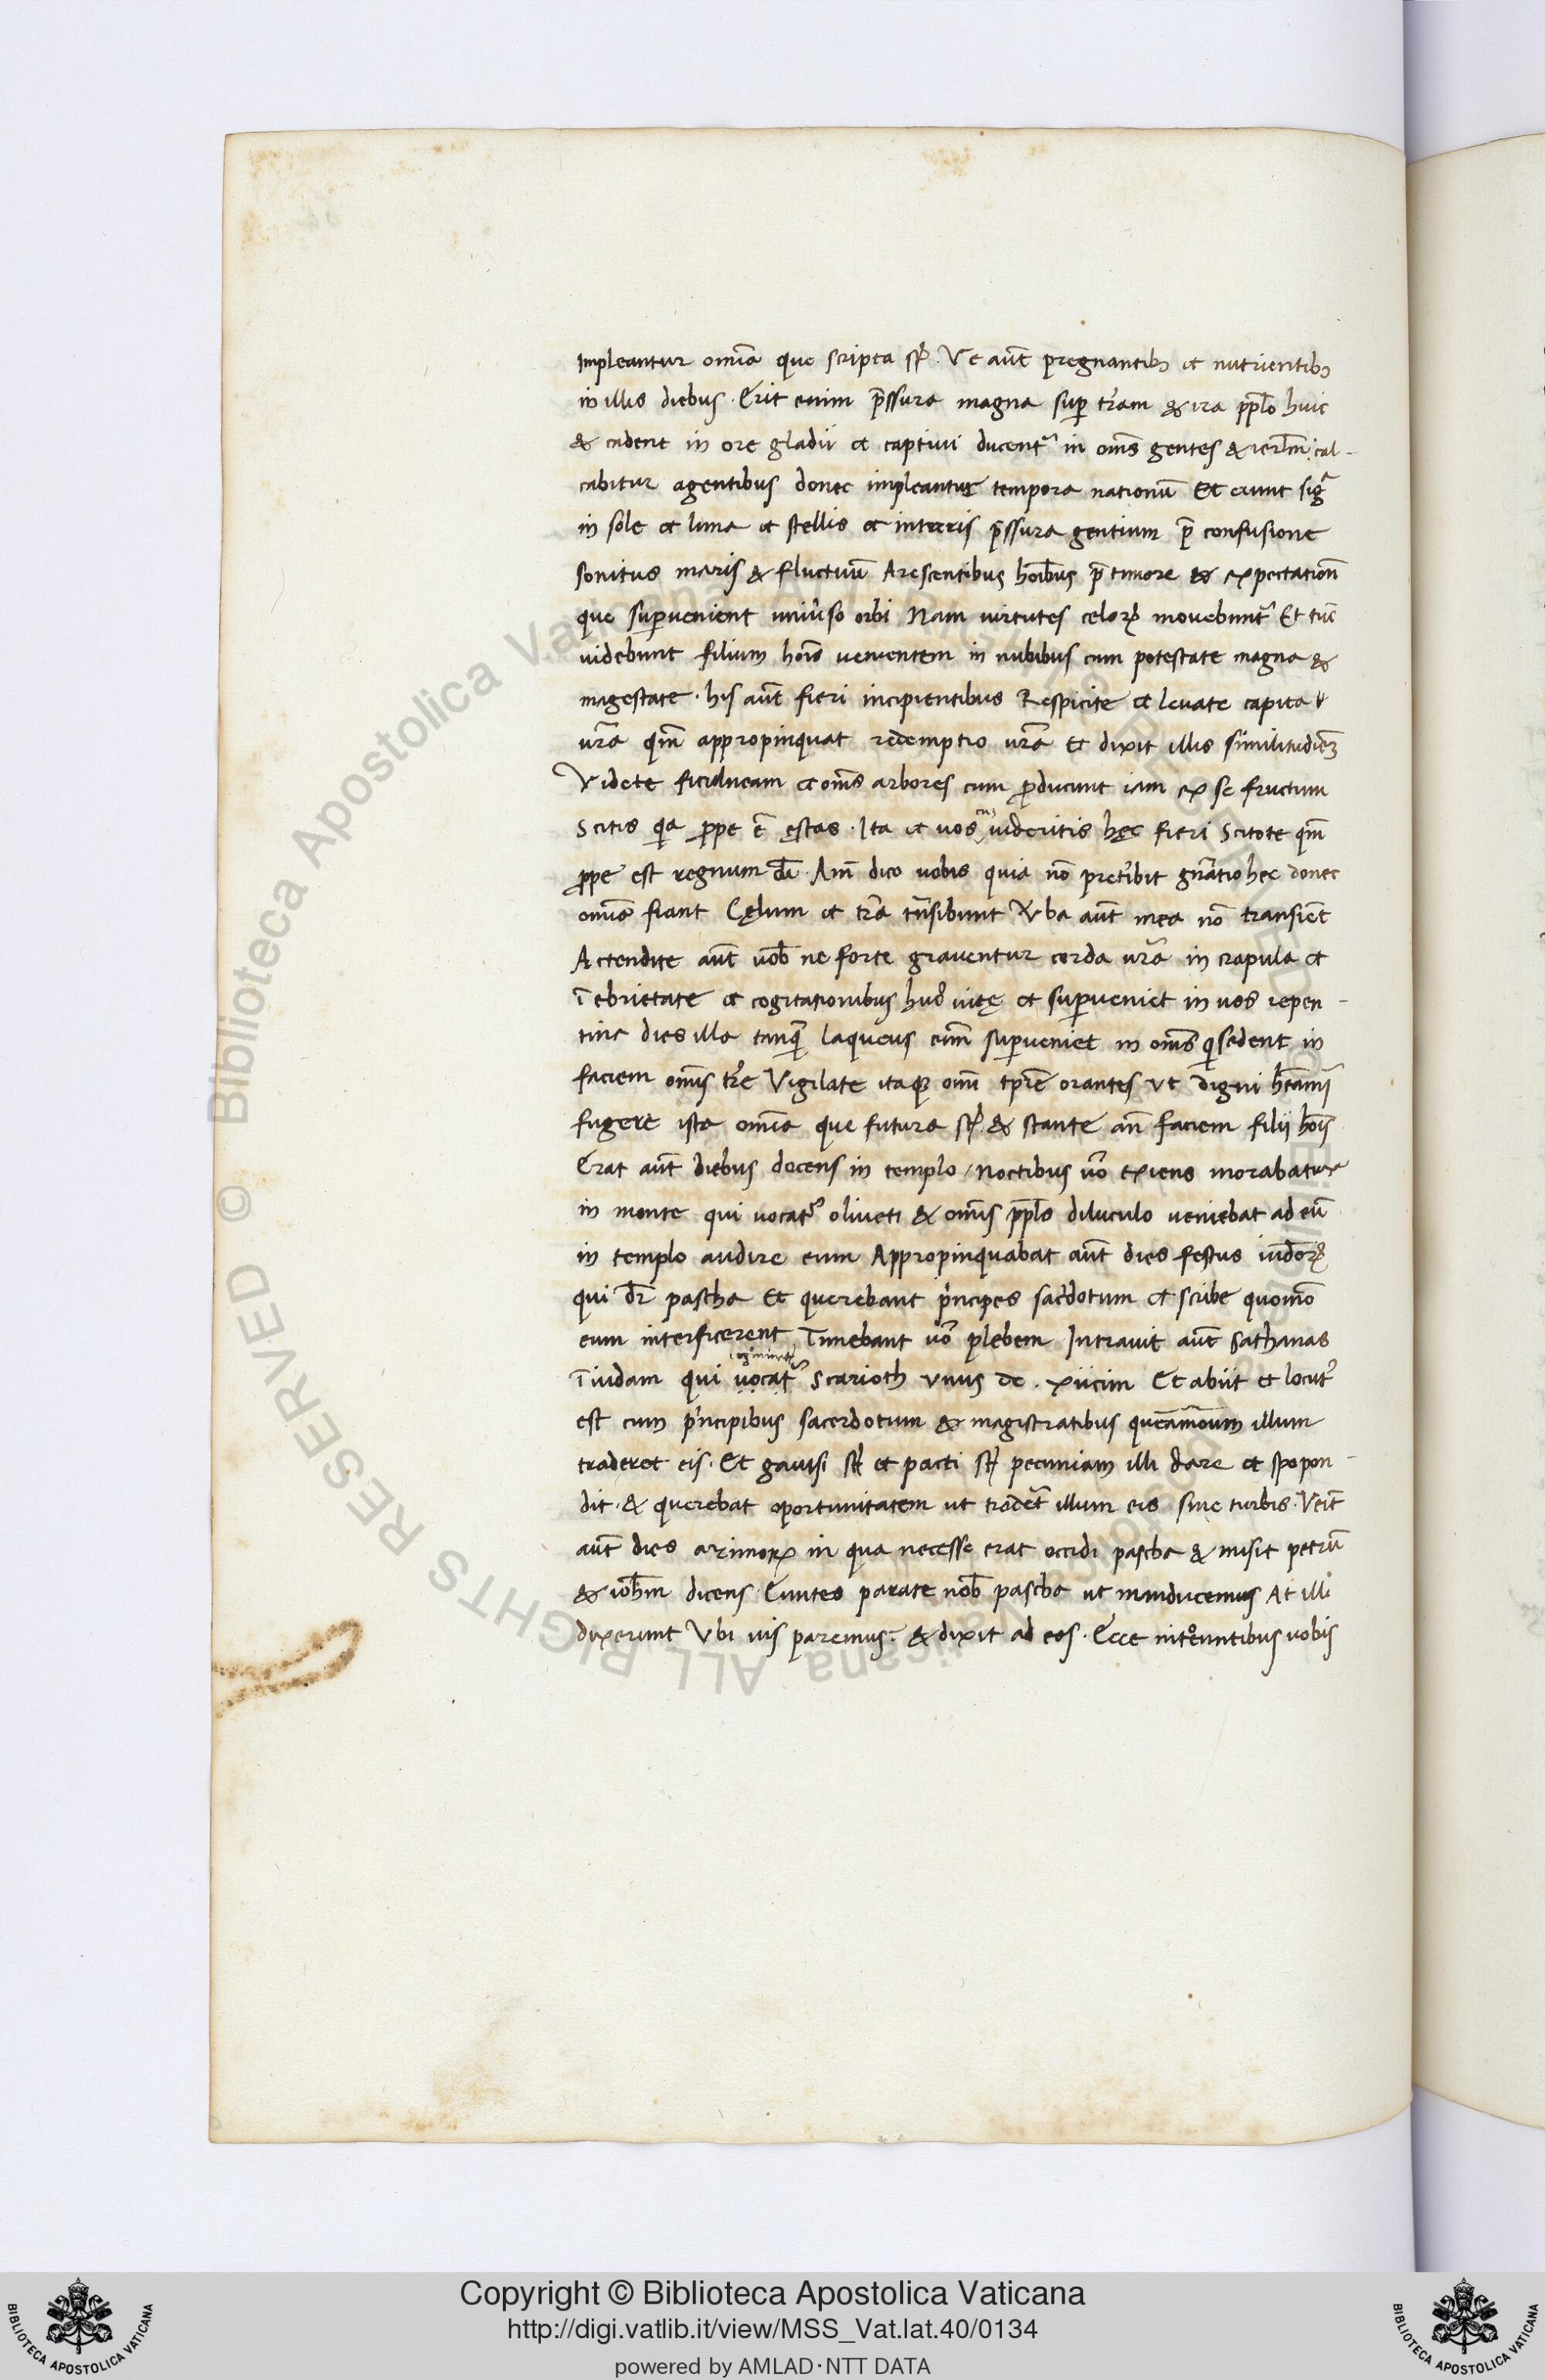 impleantur omīa que scripta st̄. Ve aut̄ pregnantibꝫ et nutrientibꝫ
in illis diebus. Erit enim p̄ssura magna suꝑ tr̄am & ira ppl̄o huic
& cadent in ore gladii et captiui ducentᷣ in om̄s gentes & ierl̄m cal-
cabitur agentibus donec impleantur tempora nationū Et erunt sigᷓ
in sole et luna et stellis et interris p̄ssura gentium p̄ confusione
sonitus maris & fluctuū Arescentibus hoībus p̄ timore & expectation̄
que suꝑuenient uniũso orbi Nam uirtutes celoꝝ mouebuntᷣ Et tūc
uidebunt filium hoīs uenientem in nubibus cum potestate magna &
magestate. his aut̄ fieri incipientibus Respicite et leuate capita v
ur̄a qm̄ appropinquat redemptio ur̄a Et dixit illis similitudiēꝫ
Videte ficulneam et om̄s arbores cum ꝓducunt iam ex se fructum
Scitis qꝛa ꝓpe ē ęstas. Ita et uos cū uideritis hęc fieri Scitote qm̄
ꝓpe est regnum dī. Am̄ dico uobis quia nō preẗibit gn̄atio hec donec
omīa fiant Cęlum et tr̄a tn̄sibunt Vba aut̄ mea nō transiēt
Actendite aut̄ uob̄ ne forte grauentur corda ur̄a in crapula et
ī ebrietate et cogitationibus huꝰ uitę et suꝑueniet in uos repen-
tina dies illa tanqᷓ laqueus eim̄ suꝑueniet in om̄s qͥ sedent in
faciem om̄is tr̄e Vigilate itaqꝫ om̄i tp̄re orantes ut digni hēamī
fugere ista omīa que futura st̄ & stante an̄ faciem filii hoīs
Erat aut̄ diebus docens in templo / noctibus uō exiens morabatur
in monte qui uocatᷣ oliueti & om̄is ppl̄s diluculo ueniebat ad eū
in templo audire eum Appropinquabat aut̄ dies festus iudeoꝝ
qui dr̄ pascha Et querebant pͥncipes sac̃dotum et scribe quomō
eum interficerent Timebant uō plebem Intrauit aut̄ Sathanas
ī iudam qui uocatᷣ cognīatᷣ Scarioth vnus de . xiicim Et abiit et locutꝰ
est cum pͥncipibus sacerdotum & magistratibus queāmoum illum
traderet eis. Et gauisi st̄ et pacti st̄ pecuniam illi dare et spopon-
dit. & querebat oportunitatem ut tradet̄ illum eis sine turbis. Veīt
aut̄ dies azimoꝝ in qua necesse erat occidi pascha & misit petrū
& ioh̄m dicens. Euntes parate nob̄ pascha ut manducemus At illi
dixerunt Vbi uis paremus. & dixit ad eos. Ecce introeuntibus uobis
Copyright © Biblioteca Apostolica Vaticana
http://digi.vatlib.it/view/MSS_Vat.lat.40/0134
powered by AMLAD·NTT DATA
BIBLIOTECA APOSTOLICA VATICANA
BIBLIOTECA APOSTOLICA VATICANA
© Biblioteca Apostolica Vaticana ALL RIGHTS RESERVED